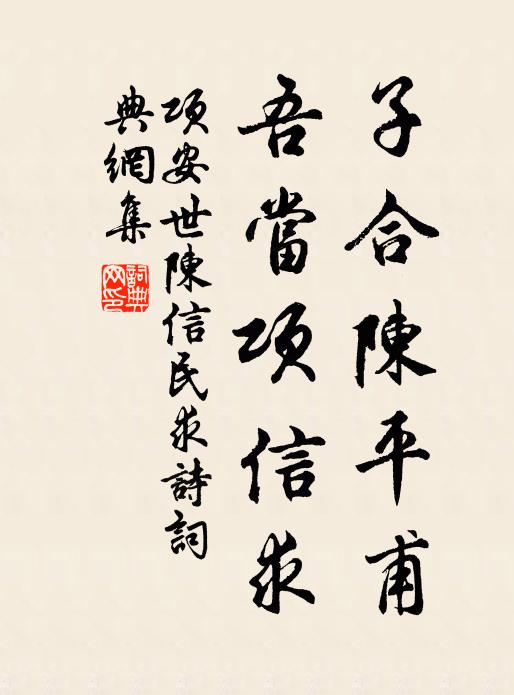 子合陳平甫
吾當項信求
項安世陳信民求詩詞
典網集
詞典網印